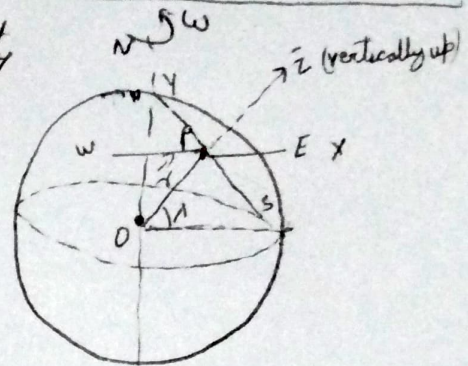 N ω
z (vertically up)
y
W P E X
r
λ S
O